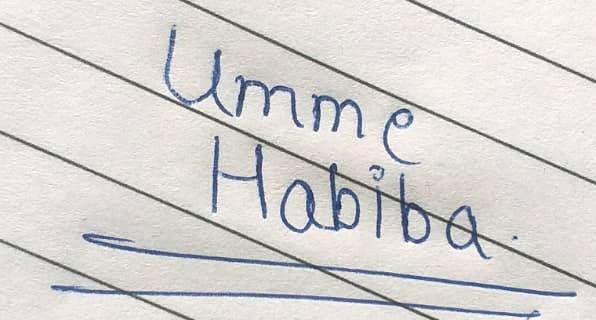 Umme
Habiba.